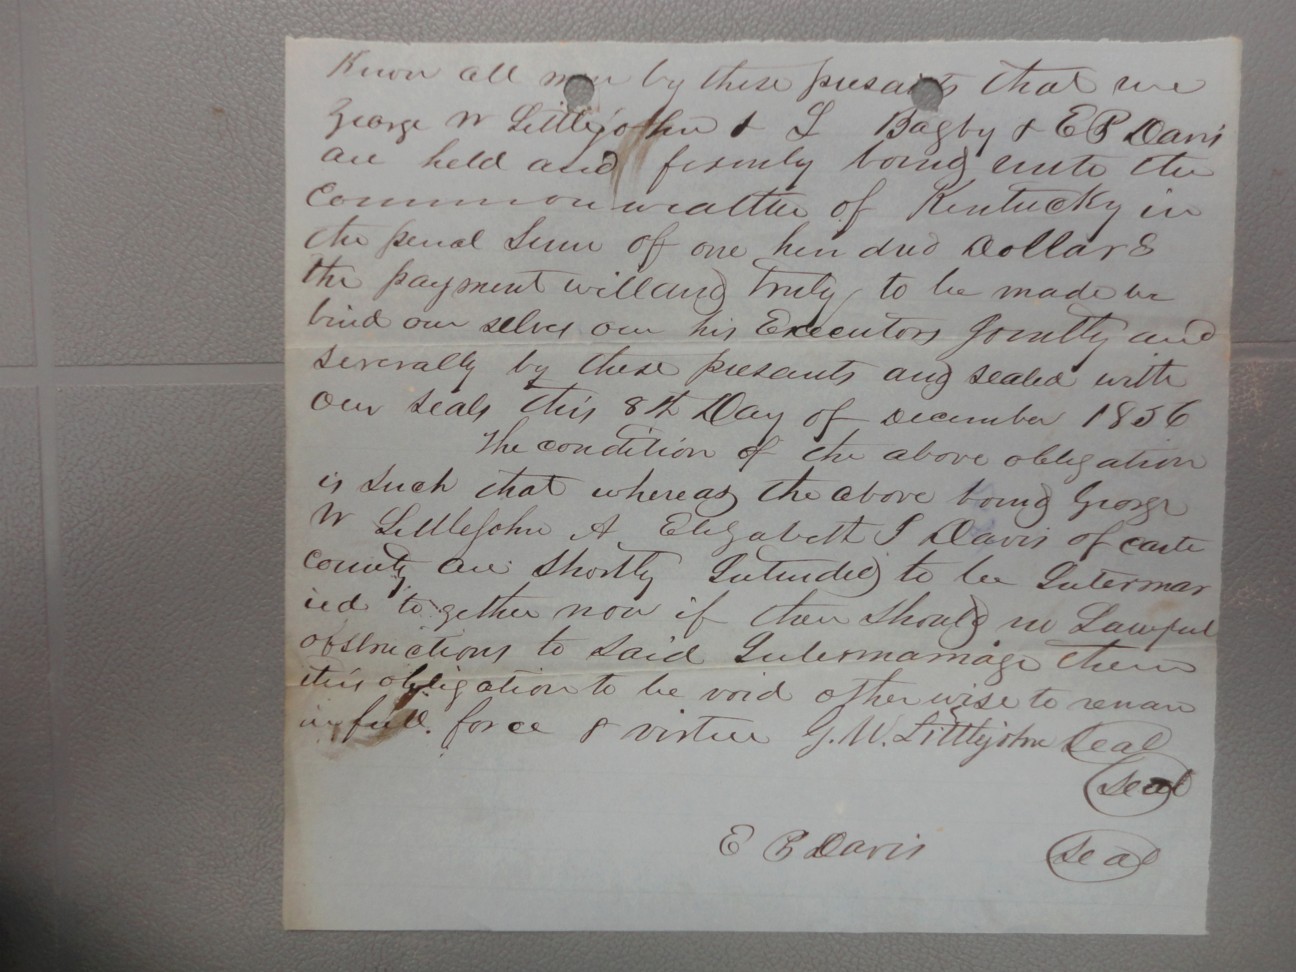 Know all men by these presants that we
George W Littlejohn & L Bagby & E P Davis
are held and firmly boung unto the
Commonwealthe of Kentucky in
the penal Sum of one hundred Dollars
the payment will and truly to be made we
bind our selves our his Executors Jointly and
severally by these presants and sealed with
our seals this 8th Day of December 1856
The condition of the above obligation
is such that whereas the above boung George
W Littlejohn & Elizabeth S Davis of
county are shortly Intended to be Intermar
ied together now if their should no Lawful
obstructions to said Intermarriage then
this obligation to be void otherwise to remain
in full force & virtue G. W. Littlejohn Seal
Seal
E P Davis Seal